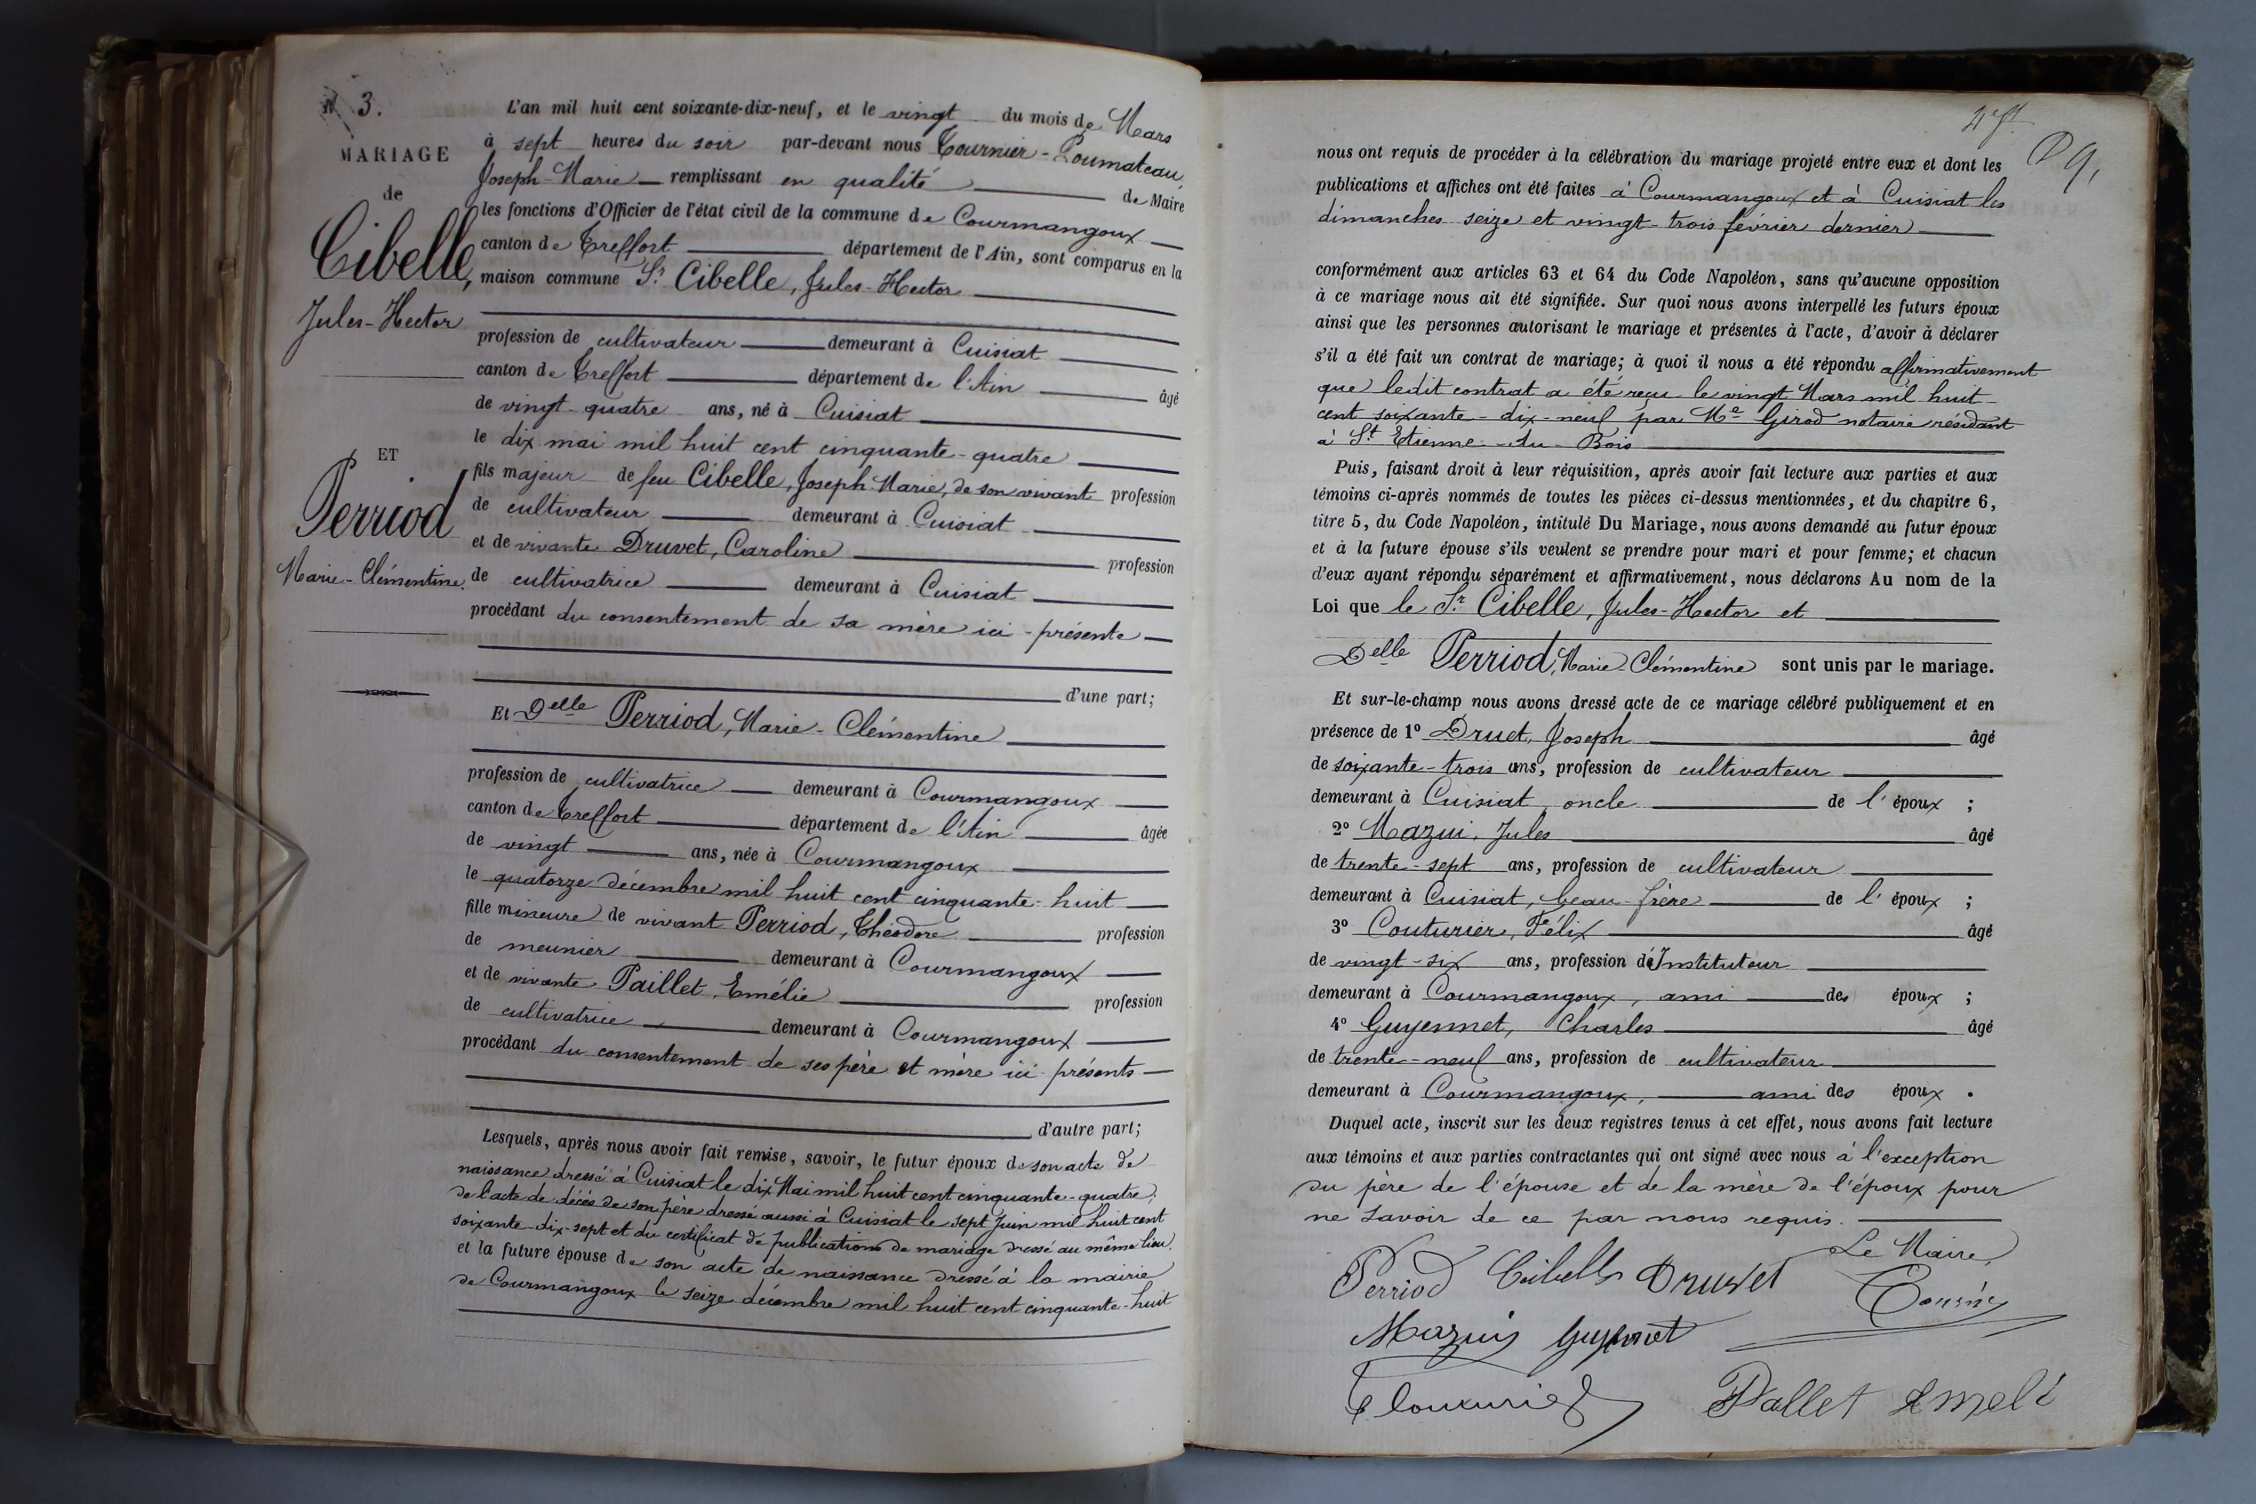 N° 3.
MARIAGE
de
Cibelle,
Jules-Hector
ET
Perriod
Marie-Clémentine.
L'an mil huit cent soixante-dix-neuf, et le vingt du mois de Mars
à sept heures du soir par-devant nous Tournier-Poumateau,
Joseph-Marie remplissant en qualité de Maire
les fonctions d'Officier de l'état civil de la commune de Courmangoux
canton de Treffort département de l'Ain, sont comparus en la
maison commune Sr Cibelle, Jules-Hector
profession de cultivateur demeurant à Cuisiat
canton de Treffort département de l'Ain âgé
de vingt-quatre ans, né à Cuisiat
le dix mai mil huit cent cinquante-quatre
fils majeur de feu Cibelle, Joseph-Marie, de son vivant profession
de cultivateur demeurant à Cuisiat
et de vivante Druvet, Caroline profession
de cultivatrice demeurant à Cuisiat
procédant du consentement de sa mère ici-présente
d'une part;
Et Delle Perriod, Marie-Clémentine
profession de cultivatrice demeurant à Courmangoux
canton de Treffort département de l'Ain âgée
de vingt ans, née à Courmangoux
le quatorze décembre mil huit cent cinquante-huit
fille mineure de vivant Perriod, Théodore profession
de meunier demeurant à Courmangoux
et de vivante Paillet, Emélie profession
de cultivatrice demeurant à Courmangoux
procédant du consentement de ses père et mère ici-présents
d'autre part;
Lesquels, après nous avoir fait remise, savoir, le futur époux de son acte de
naissance dressé à Cuisiat le dix Mai mil huit cent cinquante-quatre,
de l'acte de décès de son père dressé aussi à Cuisiat le sept Juin mil huit cent
soixante-dix-sept et du certificat de publications de mariage dressé au même lieu.
et la future épouse de son acte de naissance dressé à la mairie
de Courmangoux le seize décembre mil huit cent cinquante-huit
nous ont requis de procéder à la célébration du mariage projeté entre eux et dont les
publications et affiches ont été faites à Courmangoux et à Cuisiat les
dimanches seize et vingt-trois février dernier
conformément aux articles 63 et 64 du Code Napoléon, sans qu'aucune opposition
à ce mariage nous ait été signifiée. Sur quoi nous avons interpellé les futurs époux
ainsi que les personnes autorisant le mariage et présentes à l'acte, d'avoir à déclarer
s'il a été fait un contrat de mariage; à quoi il nous a été répondu affirmativement
que ledit contrat a été reçu le vingt Mars mil huit
cent soixante-dix-neuf par Me Girod notaire résidant
à St Etienne-du-Bois
Puis, faisant droit à leur réquisition, après avoir fait lecture aux parties et aux
témoins ci-après nommés de toutes les pièces ci-dessus mentionnées, et du chapitre 6,
titre 5, du Code Napoléon, intitulé Du Mariage, nous avons demandé au futur époux
et à la future épouse s'ils veulent se prendre pour mari et pour femme; et chacun
d'eux ayant répondu séparément et affirmativement, nous déclarons Au nom de la
Loi que le Sr Cibelle, Jules-Hector et
Delle Perriod, Marie-Clémentine sont unis par le mariage.
Et sur-le-champ nous avons dressé acte de ce mariage célébré publiquement et en
présence de 1° Druet, Joseph âgé
de soixante-trois ans, profession de cultivateur
demeurant à Cuisiat, oncle de l'époux ;
2° Mazui, Jules âgé
de trente-sept ans, profession de cultivateur
demeurant à Cuisiat, beau-frère de l'époux ;
3° Couturier, Félix âgé
de vingt-six ans, profession d'Instituteur
demeurant à Courmangoux, ami des époux ;
4° Guyennet, Charles âgé
de trente-neuf ans, profession de cultivateur
demeurant à Courmangoux, ami des époux .
Duquel acte, inscrit sur les deux registres tenus à cet effet, nous avons fait lecture
aux témoins et aux parties contractantes qui ont signé avec nous à l'exception
du père de l'épouse et de la mère de l'époux pour
ne savoir de ce par nous requis.
Le Maire,
Perriod Cibelle Druvet
Mazuis Guyennet
F Couturier Pallet Emeli